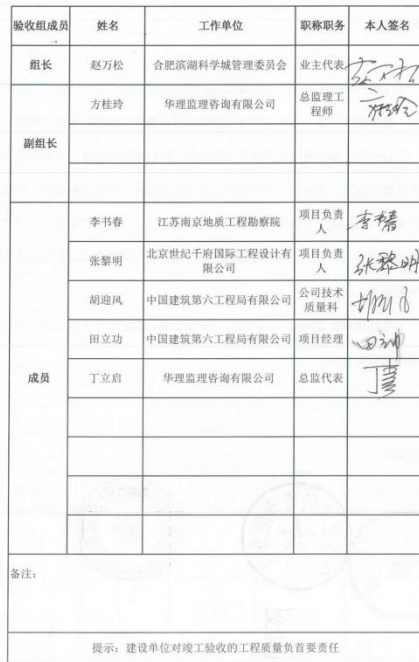 验收组成员 姓名 工作单位 职称职务 本人签名
组长 赵万松 合肥滨湖科学城管理委员会 业主代表 赵万松
副组长 方桂玲 华理监理咨询有限公司 总监理工
程师 方桂玲
成员 李书春 江苏南京地质工程勘察院 项目负责
人 李书春
张黎明 北京世纪千府国际工程设计有
限公司 项目负责
人 张黎明
胡迎风 中国建筑第六工程局有限公司 公司技术
质量科
田立功 中国建筑第六工程局有限公司 项目经理
丁立启 华理监理咨询有限公司 总监代表
备注：
提示：建设单位对竣工验收的工程质量负首要责任